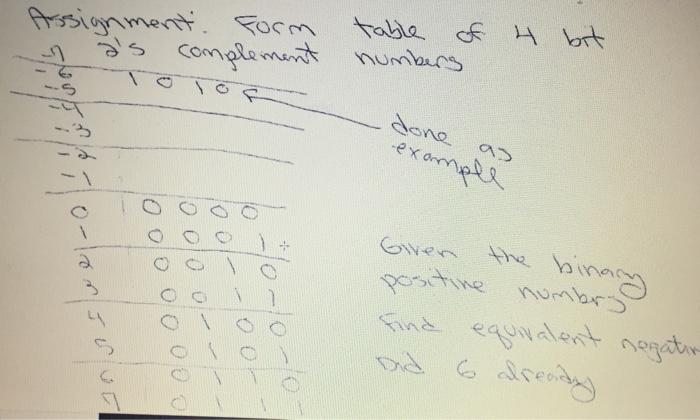 Assignment. Form table of 4 bit
2's complement numbers
-7
-6 1010
-5
-4
-3
-2
-1
done as
example
0 0000
1 0001
2 0010
3 0011
4 0100
5 0101
6 0110
7 0111
Given the binary
positive numbers
find equivalent negative
Did 6 already